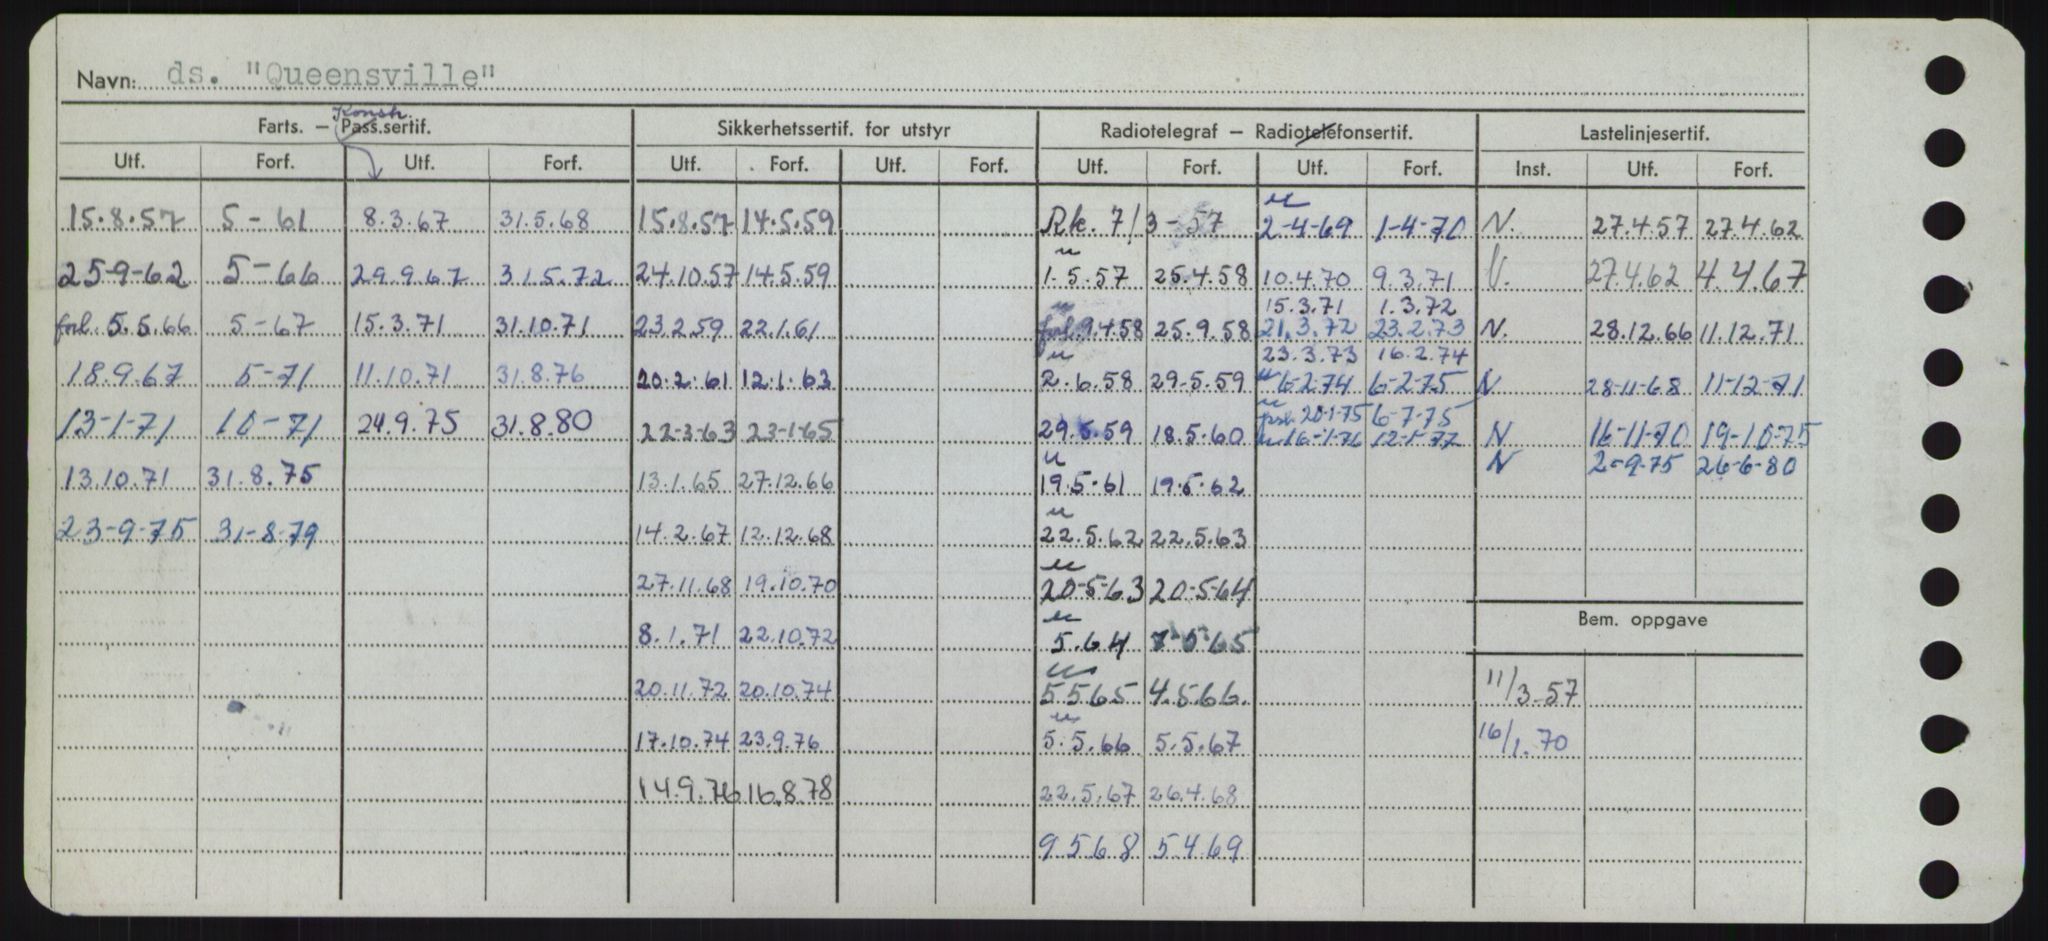 Navn: ds. "Queensville"
Farts. — Pass.sertif. Konstr. Sikkerhetssertif. for utstyr Radiotelegraf — Radiotelefonsertif. Lastelinjesertif.
Utf. Forf. Utf. Forf. Utf. Forf. Utf. Forf. Utf. Forf. Utf. Forf. Inst. Utf. Forf.
15.8.57 5-61 8.3.67 31.5.68 15.8.57 14.5.59 Rk. 7/3-57 u 2-4-69 1-4-70 N. 27.4.57 27.4.62
25-9-62 5-66 29.9.67 31.5.72 24.10.57 14.5.59 u 1.5.57 25.4.58 10.4.70 9.3.71 V. 27.4.62 4.4.67
15.3.71 1.3.72
forl. 5.5.66 5-67 15.3.71 31.10.71 23.2.59 22.1.61 forl. 9.4.58 25.9.58 21.3.72 23.2.73 N. 28.12.66 11.12.71
23.3.73 16.2.74
18.9.67 5-71 11.10.71 31.8.76 20.2.61 12.1.63 u 2.6.58 29.5.59 u 6-2-74 6-2-75 N 28-11-68 11-12-71
u 20-1-75 6-7-75
13-1-71 10-71 24.9.75 31.8.80 22-3-63 23-1-65 29.5.59 18.5.60 16-1-76 12-1-77 N 16-11-70 19-10-75
N 2-9-75 26-6-80
13.10.71 31.8.75 13.1.65 27.12.66 u 19.5.61 19.5.62
23-9-75 31-8-79 14.2.67 12.12.68 u 22.5.62 22.5.63
27.11.68 19.10.70 u 20-5-63 20-5-64
Bem. oppgave
8.1.71 22.10.72 u 5.64 5 65
20.11.72 20.10.74 u 5.5.65 4.5.66. 11/3-57
17.10.74 23.9.76 u 5.5.66 5.5.67 16/1.70
14.9.76 16.8.78 22.5.67 26.4.68
9.5.68 5.4.69